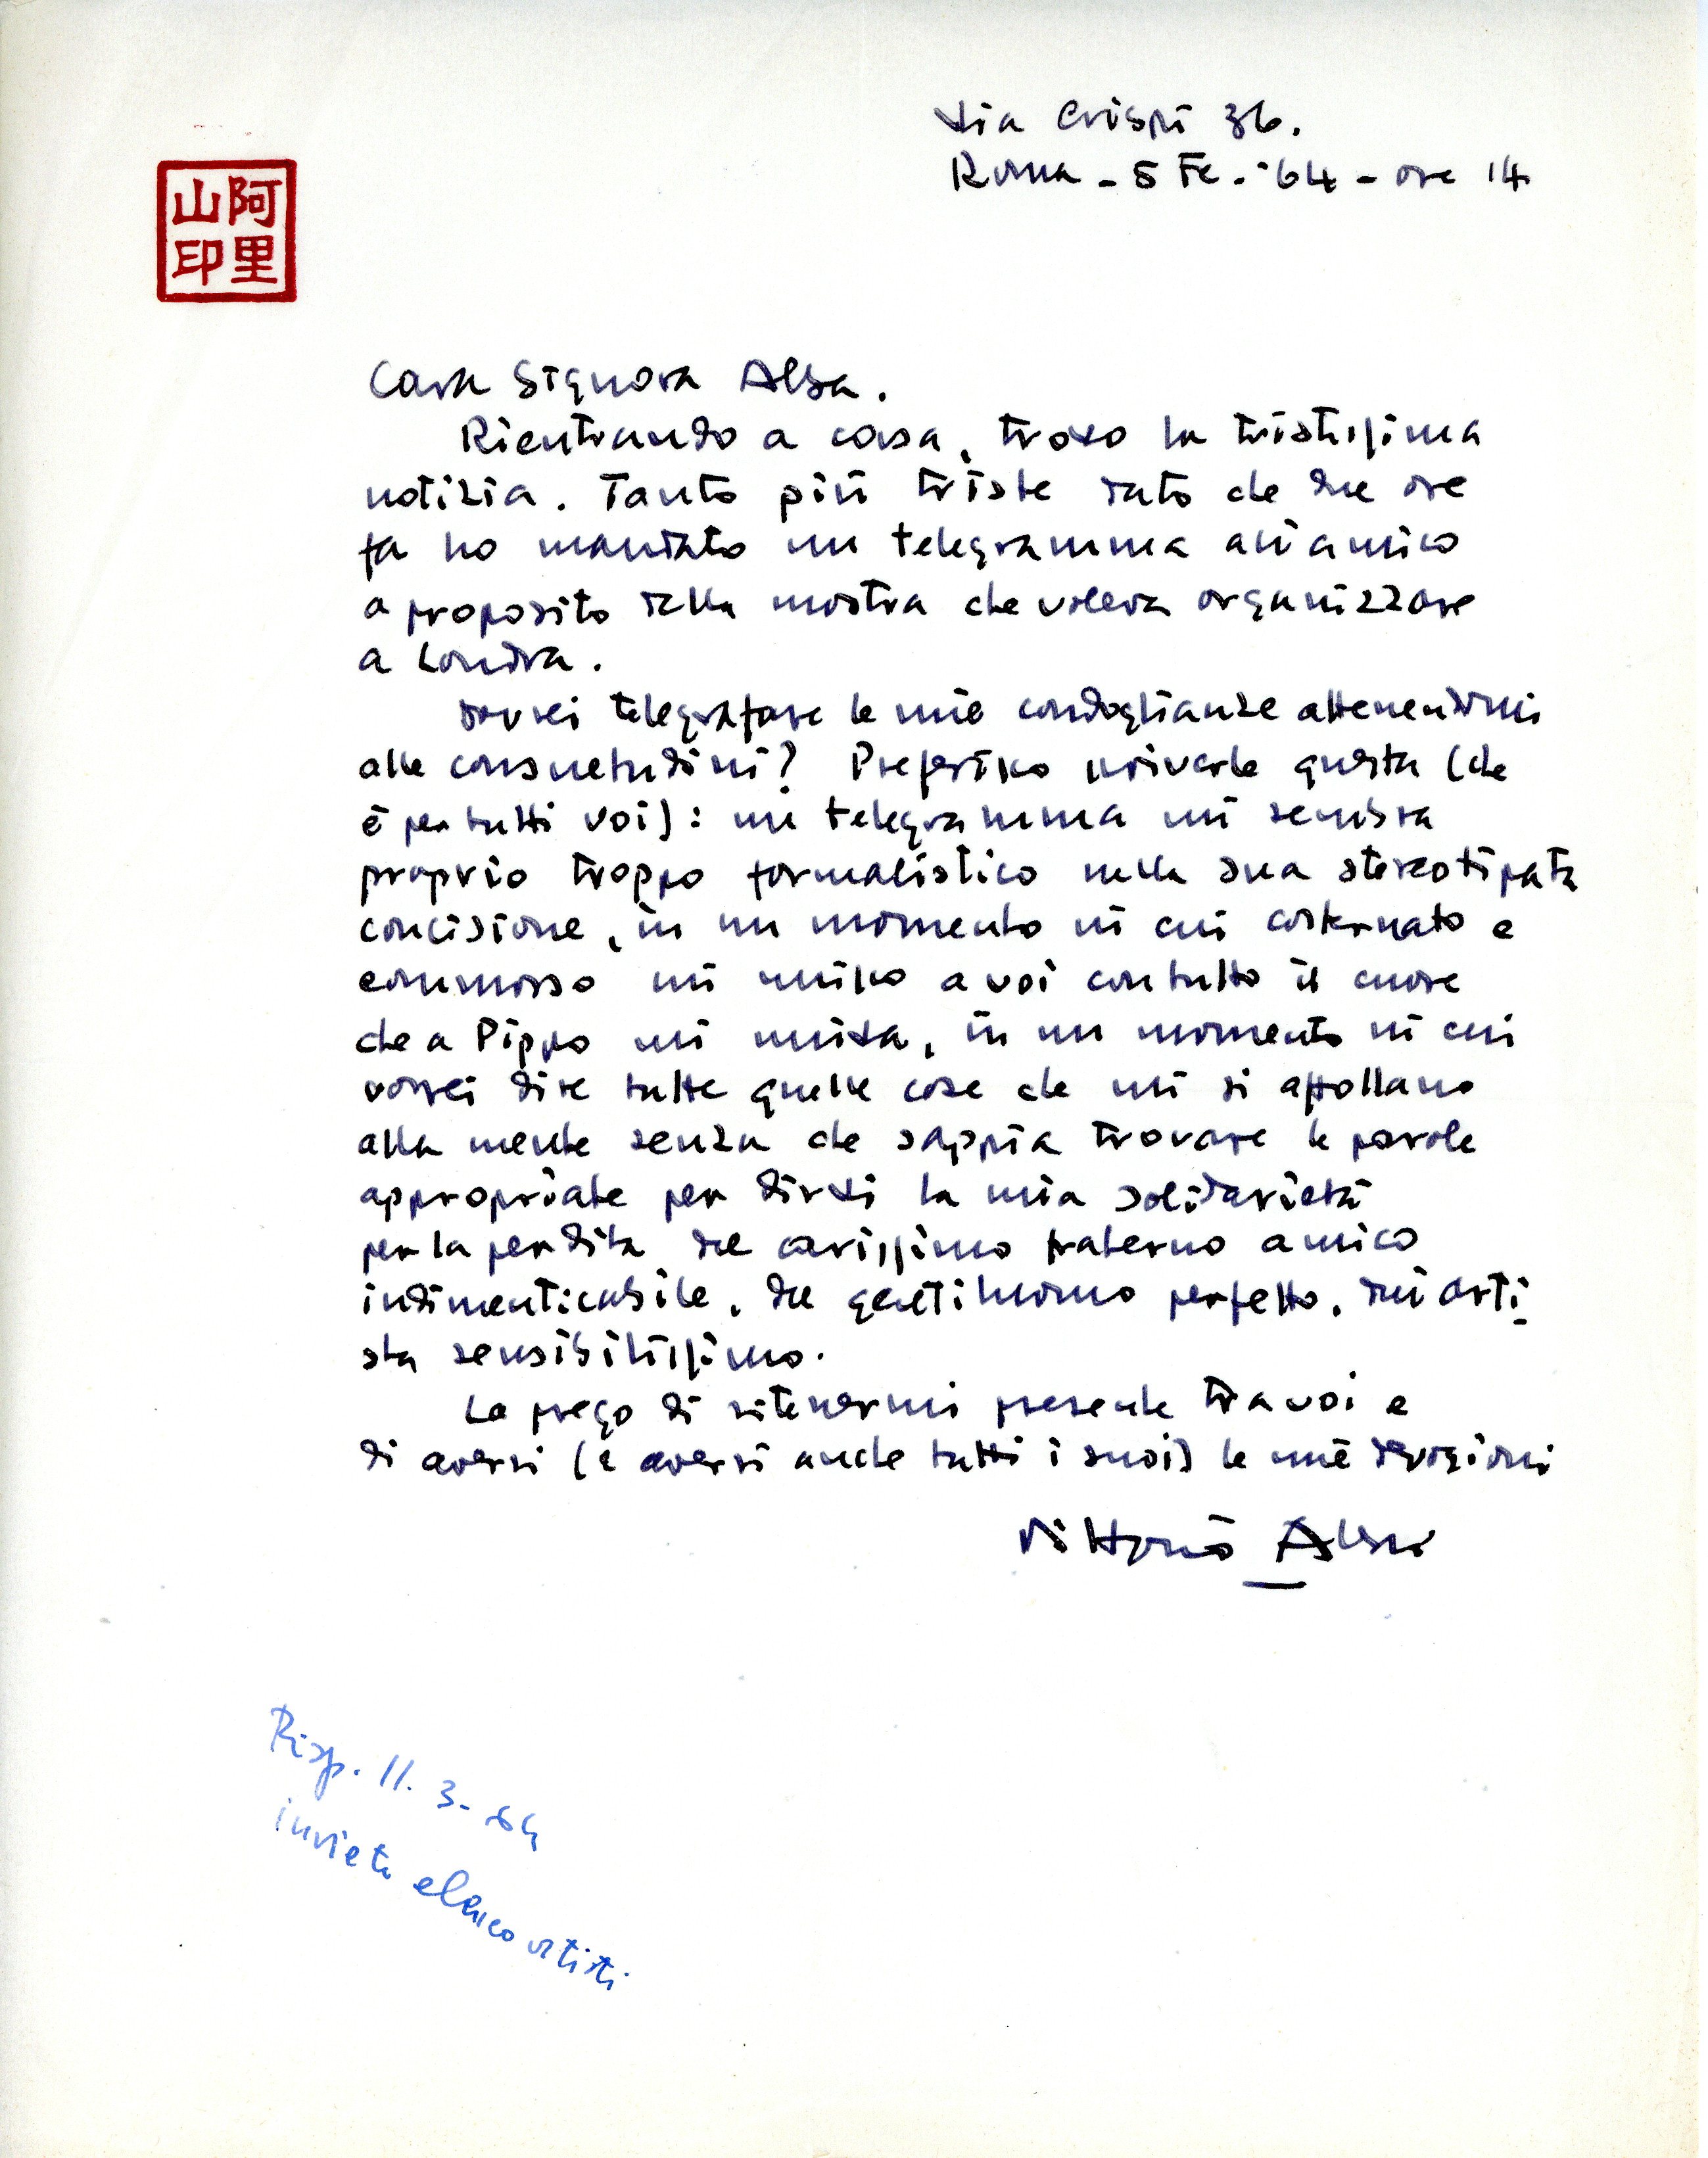 Via Crispi 36.
Roma - 5 Fe. '64 - ore 14
阿里
山印
Cara Signora Alba.
Rientrando a casa, trovo la tristissima
notizia. Tanto più triste dato che due ore
fa ho mandato un telegramma all'amico
a proposito della mostra che voleva organizzare
a Londra.
Dovrei telegrafare le mie condoglianze attenendomi
alle consuetudini? Preferisco scriverle questa (che
è per tutti voi): un telegramma mi sembra
proprio troppo formalistico nella sua stereotipata
concisione, in un momento in cui costernato e
commosso mi unisco a voi con tutto il cuore
che a Pippo mi univa, in un momento in cui
vorrei dire tutte quelle cose che mi si affollano
alla mente senza che sappia trovare le parole
appropriate per dirvi la mia solidarietà
per la perdita del carissimo fraterno amico
indimenticabile, del gentiluomo perfetto, dell'arti
sta sensibilissimo.
La prego di ritenermi presente tra voi e
di aversi (e aversi anche tutti i suoi) le mie devozioni
Vittorio
Risp. 11. 3 - 64
inviato elenco artisti